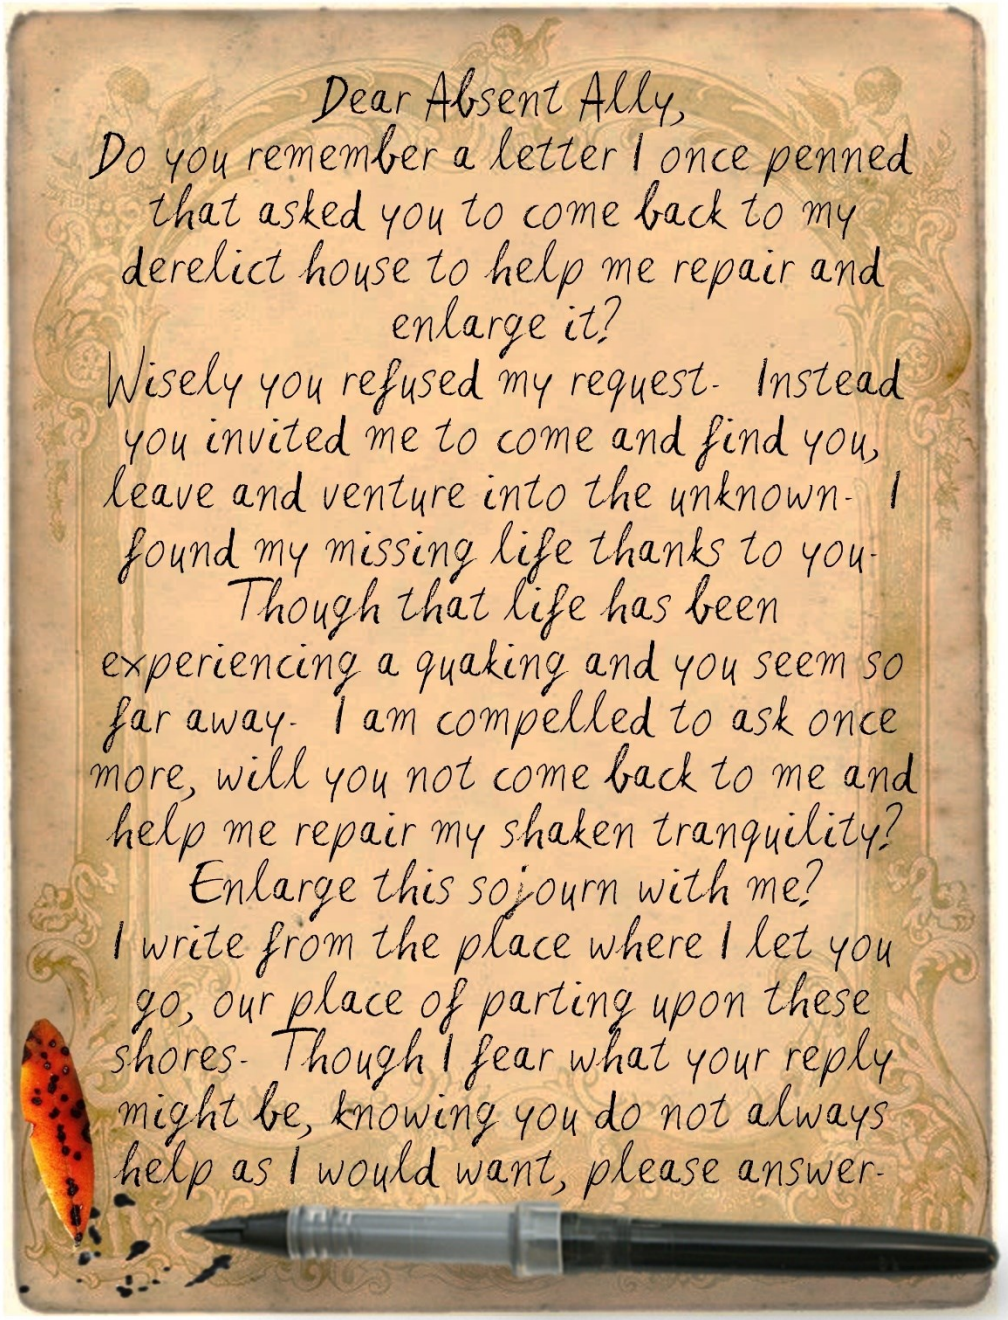 Dear Absent Ally,
Do you remember a letter I once penned
that asked you to come back to my
derelict house to help me repair and
enlarge it?
Wisely you refused my request. Instead
you invited me to come and find you,
leave and venture into the unknown. I
found my missing life thanks to you.
Though that life has been
experiencing a quaking and you seem so
far away. I am compelled to ask once
more, will you not come back to me and
help me repair my shaken tranquility?
Enlarge this sojourn with me?
I write from the place where I let you
go, our place of parting upon these
shores. Though I fear what your reply
might be, knowing you do not always
help as I would want, please answer.